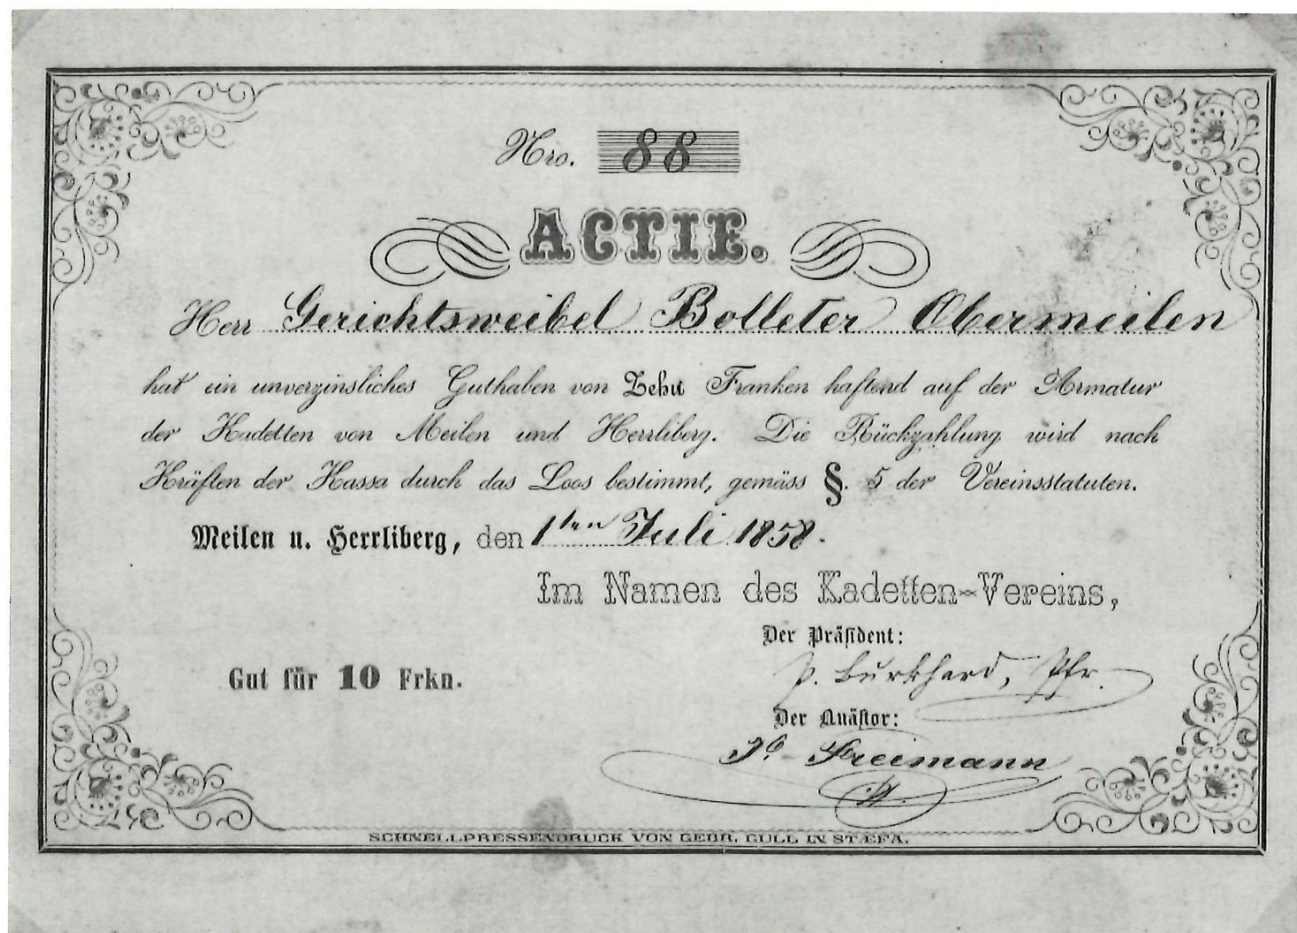 Nro. 88
ACTIE.
Herr Gerichtsweibel Bolleter Obermeilen
hat ein unverzinsliches Guthaben von Zehn Franken haftend auf der Armatur
der Kadetten von Meilen und Herrliberg. Die Rückzahlung wird nach
Kräften der Kassa durch das Loos bestimmt, gemäss §. 5 der Vereinsstatuten.
Meilen u. Herrliberg, den 1ten Juli 1858.
Im Namen des Kadetten-Vereins,
Der Präsident:
Gut für 10 Frkn.
P. Burkhard, Pfr.
Der Quästor:
Jb. Freimann
SCHNELLPRESSENDRUCK VON GEBR. GULL IN STÆFA.